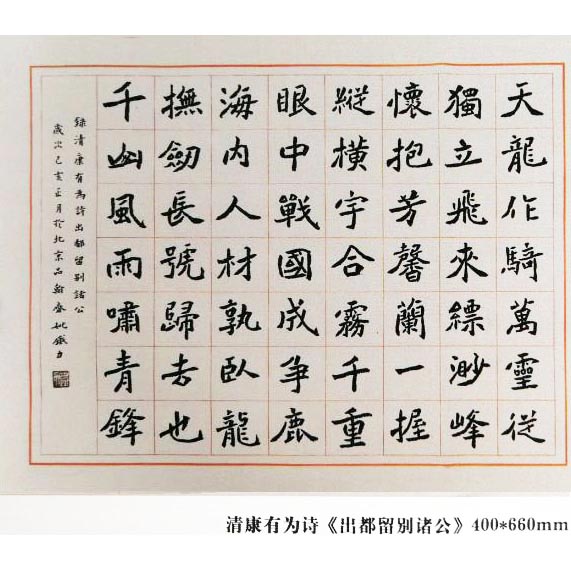 天龍作騎萬靈從
獨立飛來縹渺峰
懷抱芳馨蘭一握
縱橫宇合霧千重
眼中戰國成争鹿
海内人材孰臥龍
撫劒長號歸去也
千山風雨嘯青鋒
錄清康有為詩出都留别諸公
歲次己亥正月於北京品翰齋姚鐵力
清康有为诗《出都留别诸公》400*660mm